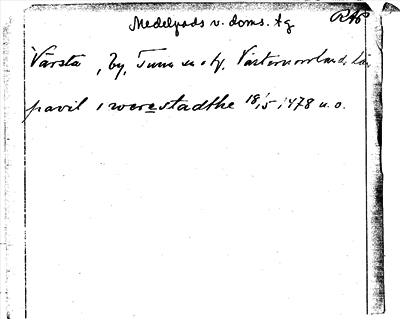 Medelpads v. doms. tg RAÖ
Värsta, by, Tuna sn o tg, Västernorrlands län
pavil i werestadhe 18/5 1478 u. o.